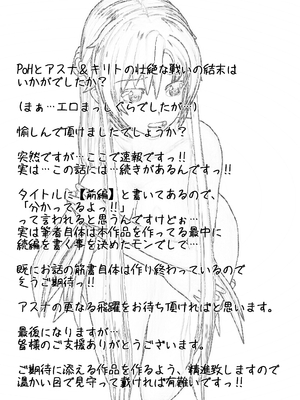 PoHとアスナ&キリトの壮絶な戦いの結末は
いかがでしたか?
(まぁ…エロまっしぐらでしたが…)
愉しんで頂けましたでしょうか?
突然ですが…ここで速報ですっ!!
実は…この話には…続きがあるんですっ!!
タイトルに【前編】と書いてあるので、
「分かってるよっ!!」
って言われると思うんですけどぉ…
実は筆者自体は本作品を作ってる最中に
続編を書く事を決めたモンでして…
既にお話の筋書自体は作り終わっているので
乞うご期待っ!!
アスナの更なる飛躍をお待ち頂ければと思います。
最後になりますが…
皆様のご支援ありがとうございます。
ご期待に添える作品を作るよう、精進致しますので
温かい目で見守って戴ければ有難いですっ!!